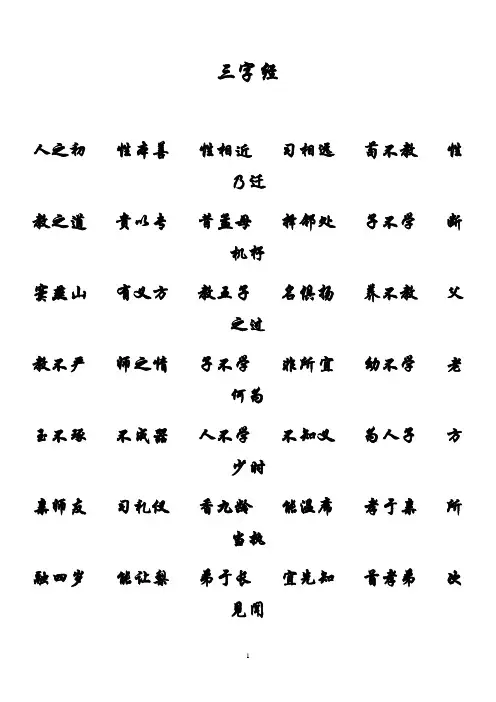 三字经
人之初 性本善 性相近 习相远 苟不教 性
乃迁
教之道 贵以专 昔孟母 择邻处 子不学 断
机杼
窦燕山 有义方 教五子 名俱扬 养不教 父
之过
教不严 师之情 子不学 非所宜 幼不学 老
何为
玉不琢 不成器 人不学 不知义 为人子 方
少时
亲师友 习礼仪 香九龄 能温席 孝于亲 所
当执
融四岁 能让梨 弟于长 宜先知 首孝弟 次
见闻
1